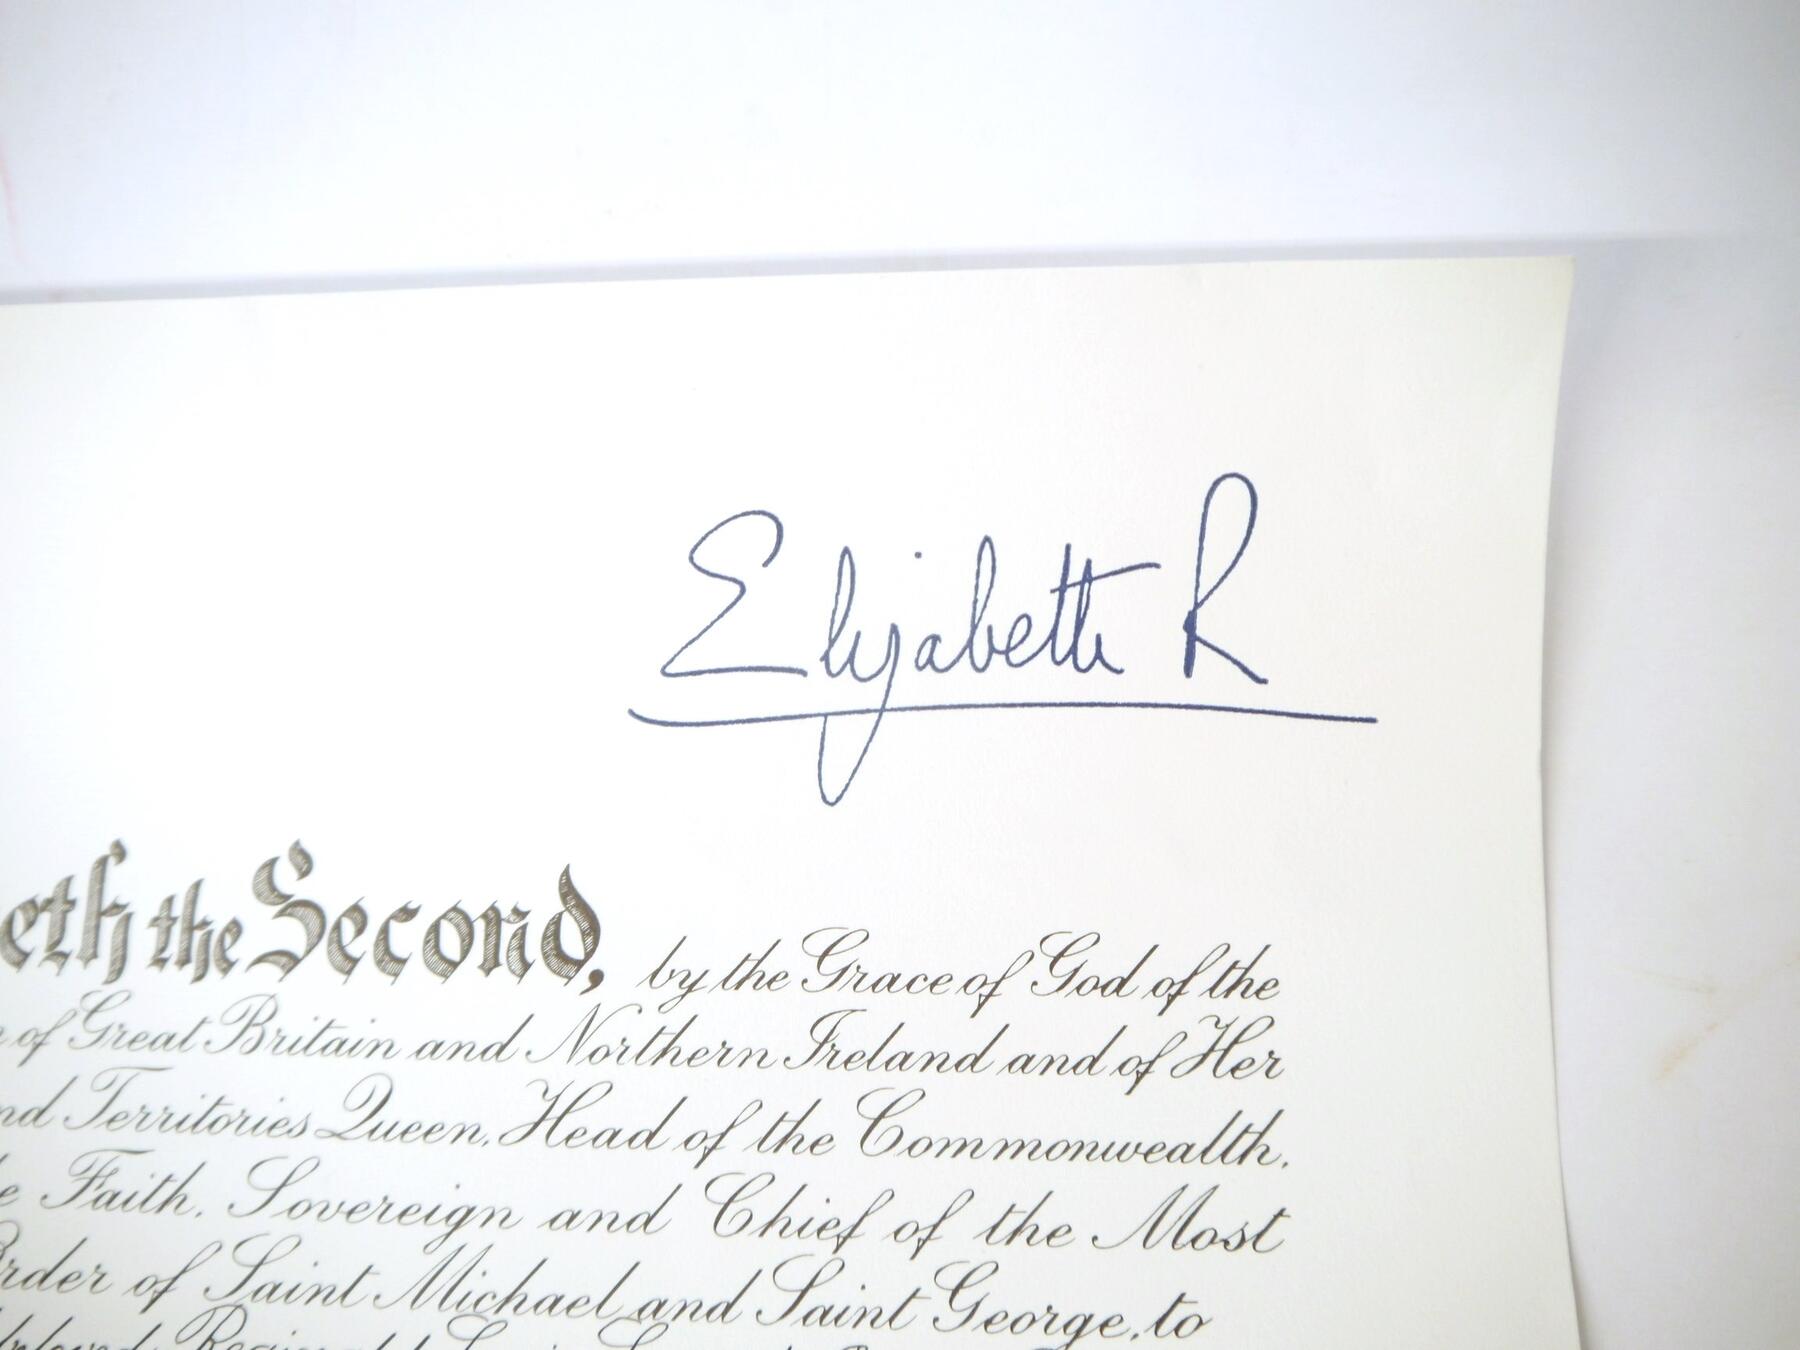 Elizabeth R
eth the Second, by the Grace of God of the
of Great Britain and Northern Ireland and of Her
nd Territories Queen, Head of the Commonwealth,
e Faith, Sovereign and Chief of the Most
Order of Saint Michael and Saint George, to
Reginald Louis